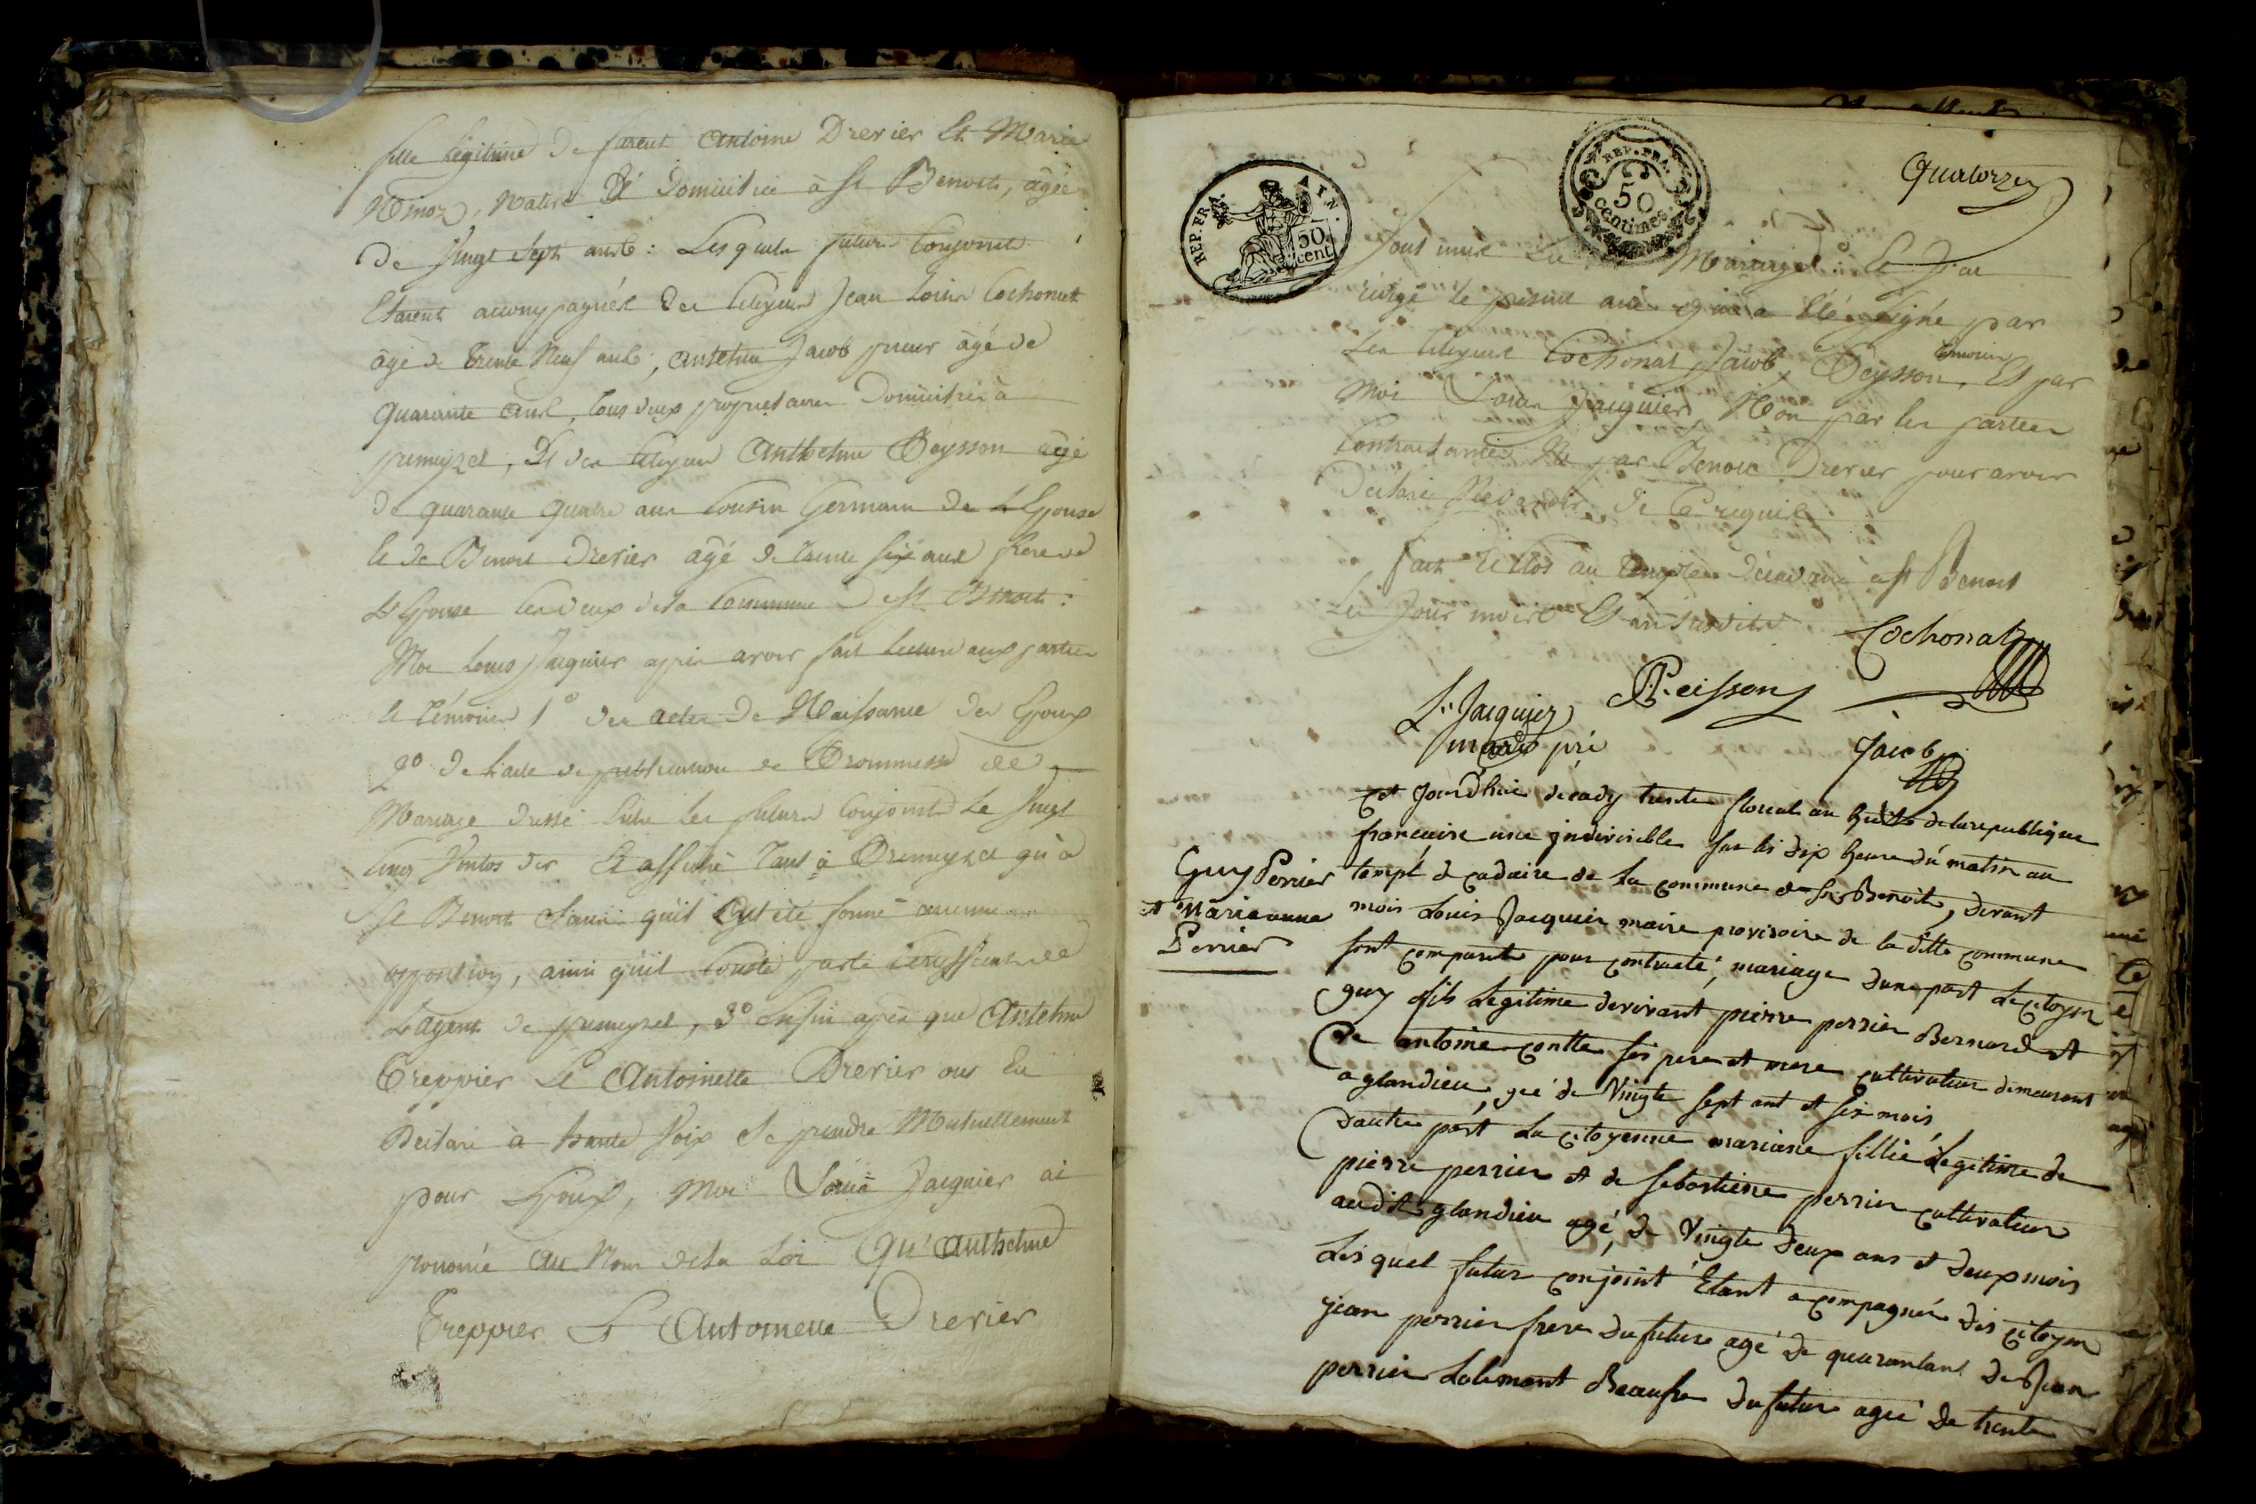 fille légitime de furent Antoine Drevier Et Marie
Native Et Domiciliée à St Benoit, âgée
de Vingt Sept ans : Lesquels futurs Conjoints
Etaient accompagnés des Citoyens Jean Louis Cochonat
âgé de trente Neuf ans, Antelme Jacob âgé de
quarante ans, tous deux propriétaires Domiciliés à
premeyzel, Et des Citoyens Anthelme Peysson agé
de quarante quatre ans Cousin Germain de L'Epouse
Et de Benoit Drevier agé de trente six ans frere de
L'Epouse les deux de la Commune de St Benoit :
Moi Louis Jacquier après avoir fait lecture aux parties
Et témoins 1° des actes de Naissance des Epoux
2° de l'acte de publication de Prommesse de
Mariage dressé Entre les futurs Conjoints Le Vingt
Cinq Ventos der Et affiché tant à Premeyzel qu'à
St Benoit Sans qu'il Eut été formé aucune
opposition, ainsi qu'il Conste par le Certifficat de
L'agent de premeyzel, 3° Enfin après que Antelme
Treppier Et Antoinette Drevier ont Eu
Déclaré à haute Voix Se prendre Mutuellement
pour Epoux, Moi Louis Jacquier ai
prononcé au Nom de la Loi Qu'Anthelme
Treppier Et Antoinette Drevier
Quatorze
REP. FRA. AIN. 50 cent
REP. FRA. 50 centimes.
Sont unis En Mariage : Et J'ai
rédigé le présent acte qui a Eté signé par
Les Citoyens Cochonat, Jacob, Peysson, témoins Et par
Moi Louis Jacquier, Non par les parties
Contractantes Ni par Benoit Drevier pour avoir
Déclaré Ne Savoir de Ce requis
Fait Et Clos au Temple Décadaire à St Benoit
Les Jour mois Et an susdits
Cochonat
Peisson
L. Jacquier
maire pro
Jacob
Cet Jourdhui decady trente floreal an huit de la republique
francaise une indivisible sur les dix heure du matin au
Guy Perrier
et Marieanne
Perrier
templ de cadaire de la commune de St Benoit, devant
mois Louis Jacquier maire provisoire de la ditte commune
sont comparut pour contracté, mariage dune part Le citoyen
guy fils Legitime devivant pierre perrier Bernard et
de antoine contte ses pere et mere cultivateur demeurant
a glandieu, gé de Vingte sept ant et six mois
Dautre part La citoyenne mariane fillie Legitime de
pierre perrier et de sebastiene perrier cultivateur
audit glandieu agé, de Vingte deux ans et deux mois
Les quel futur conjoint Etant acompagnés des citoyen
jean perrier frere du future agé de quarantant de Jean
perrier Lalemant Beaufre du future ageé de trente